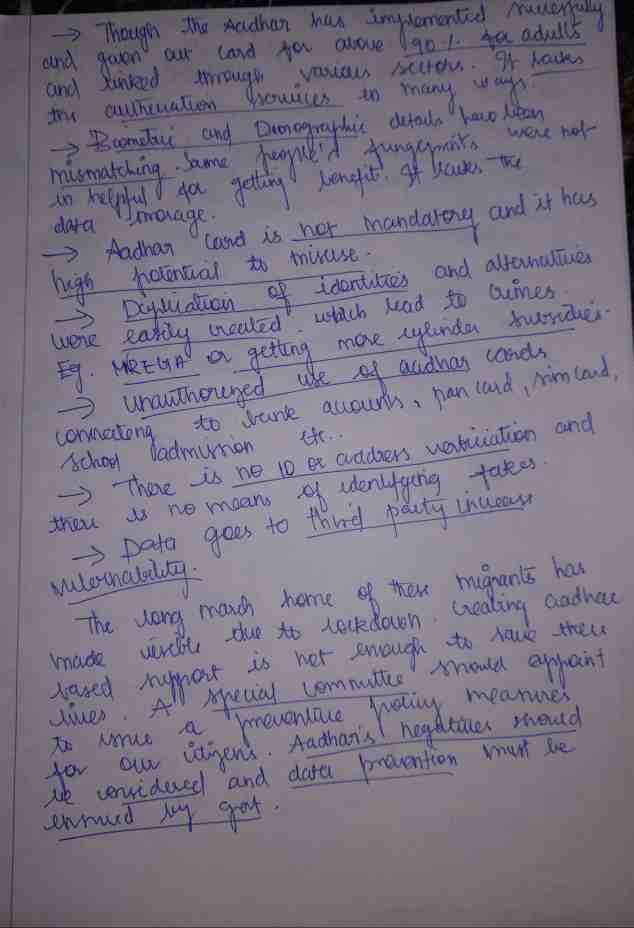 → Though the Aadhar has implemented successfully
and given out card for above 90% for adults
and linked through various sectors. It lacks
the authenation services in many ways.
→ Biometric and Demographic details have been
mismatching. Some people's fingerprints were not
in helpful for getting benefit. It lacks the
data storage.
→ Aadhar card is not mandatory and it has
high potential to misuse.
→ Duplication of identities and alternatives
were easily created. which lead to crimes.
Eg. MREGA or getting more cylinder subsidies.
→ Unauthorized use of aadhar cards
connecting to bank accounts, pan card, sim card,
school admission etc..
→ There is no ID or address verification and
there is no means of identifying fakes.
→ Data goes to third party increase
vulernability.
The long march home of these migrants has
made visible due to lockdown. Creating aadhar
based support is not enough to save their
lives. A special committee should appoint
to issue a preventive policy measures
for our citizens. Aadhar's negatives should
be considered and data prevention must be
ensured by govt.